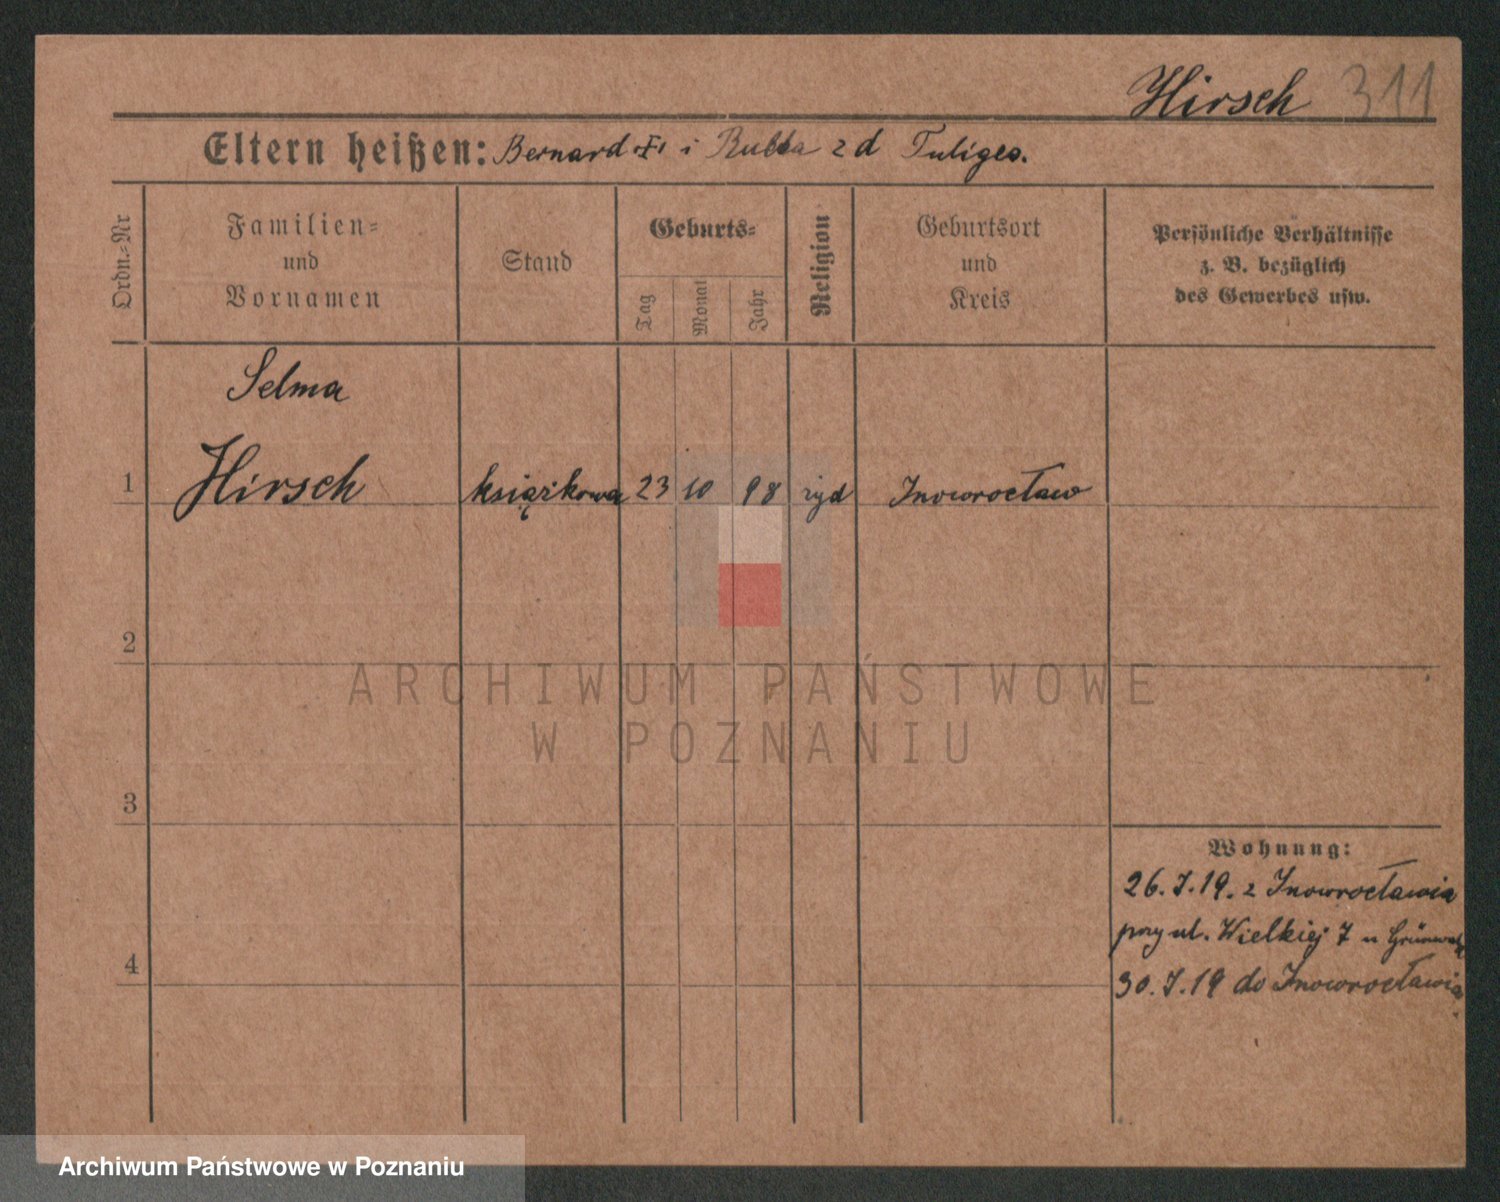 Hirsch 311
Eltern heißen: Bernard i z d Tuliges.
Ordn.-Nr
Familien-
und
Vornamen
Stand
Geburts-
Tag
Monat
Jahr
Religion
Geburtsort
und
Kreis
Persönliche Verhältnisse
z. B. bezüglich
des Gewerbes usw.
Selma
1 Hirsch książkowa 23 10 98 żyd Inowrocław
2
ARCHIWUM PAŃSTWOWE
W POZNANIU
3
Wohnung:
26.7.19. z Inowrocławia
przy ul. Wielkiej 7 u
4
30.7.19 do Inowrocławia
Archiwum Państwowe w Poznaniu